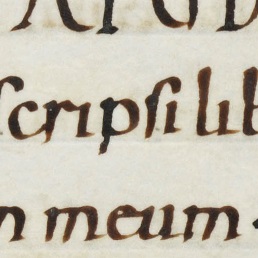 scripsi lib
n meum